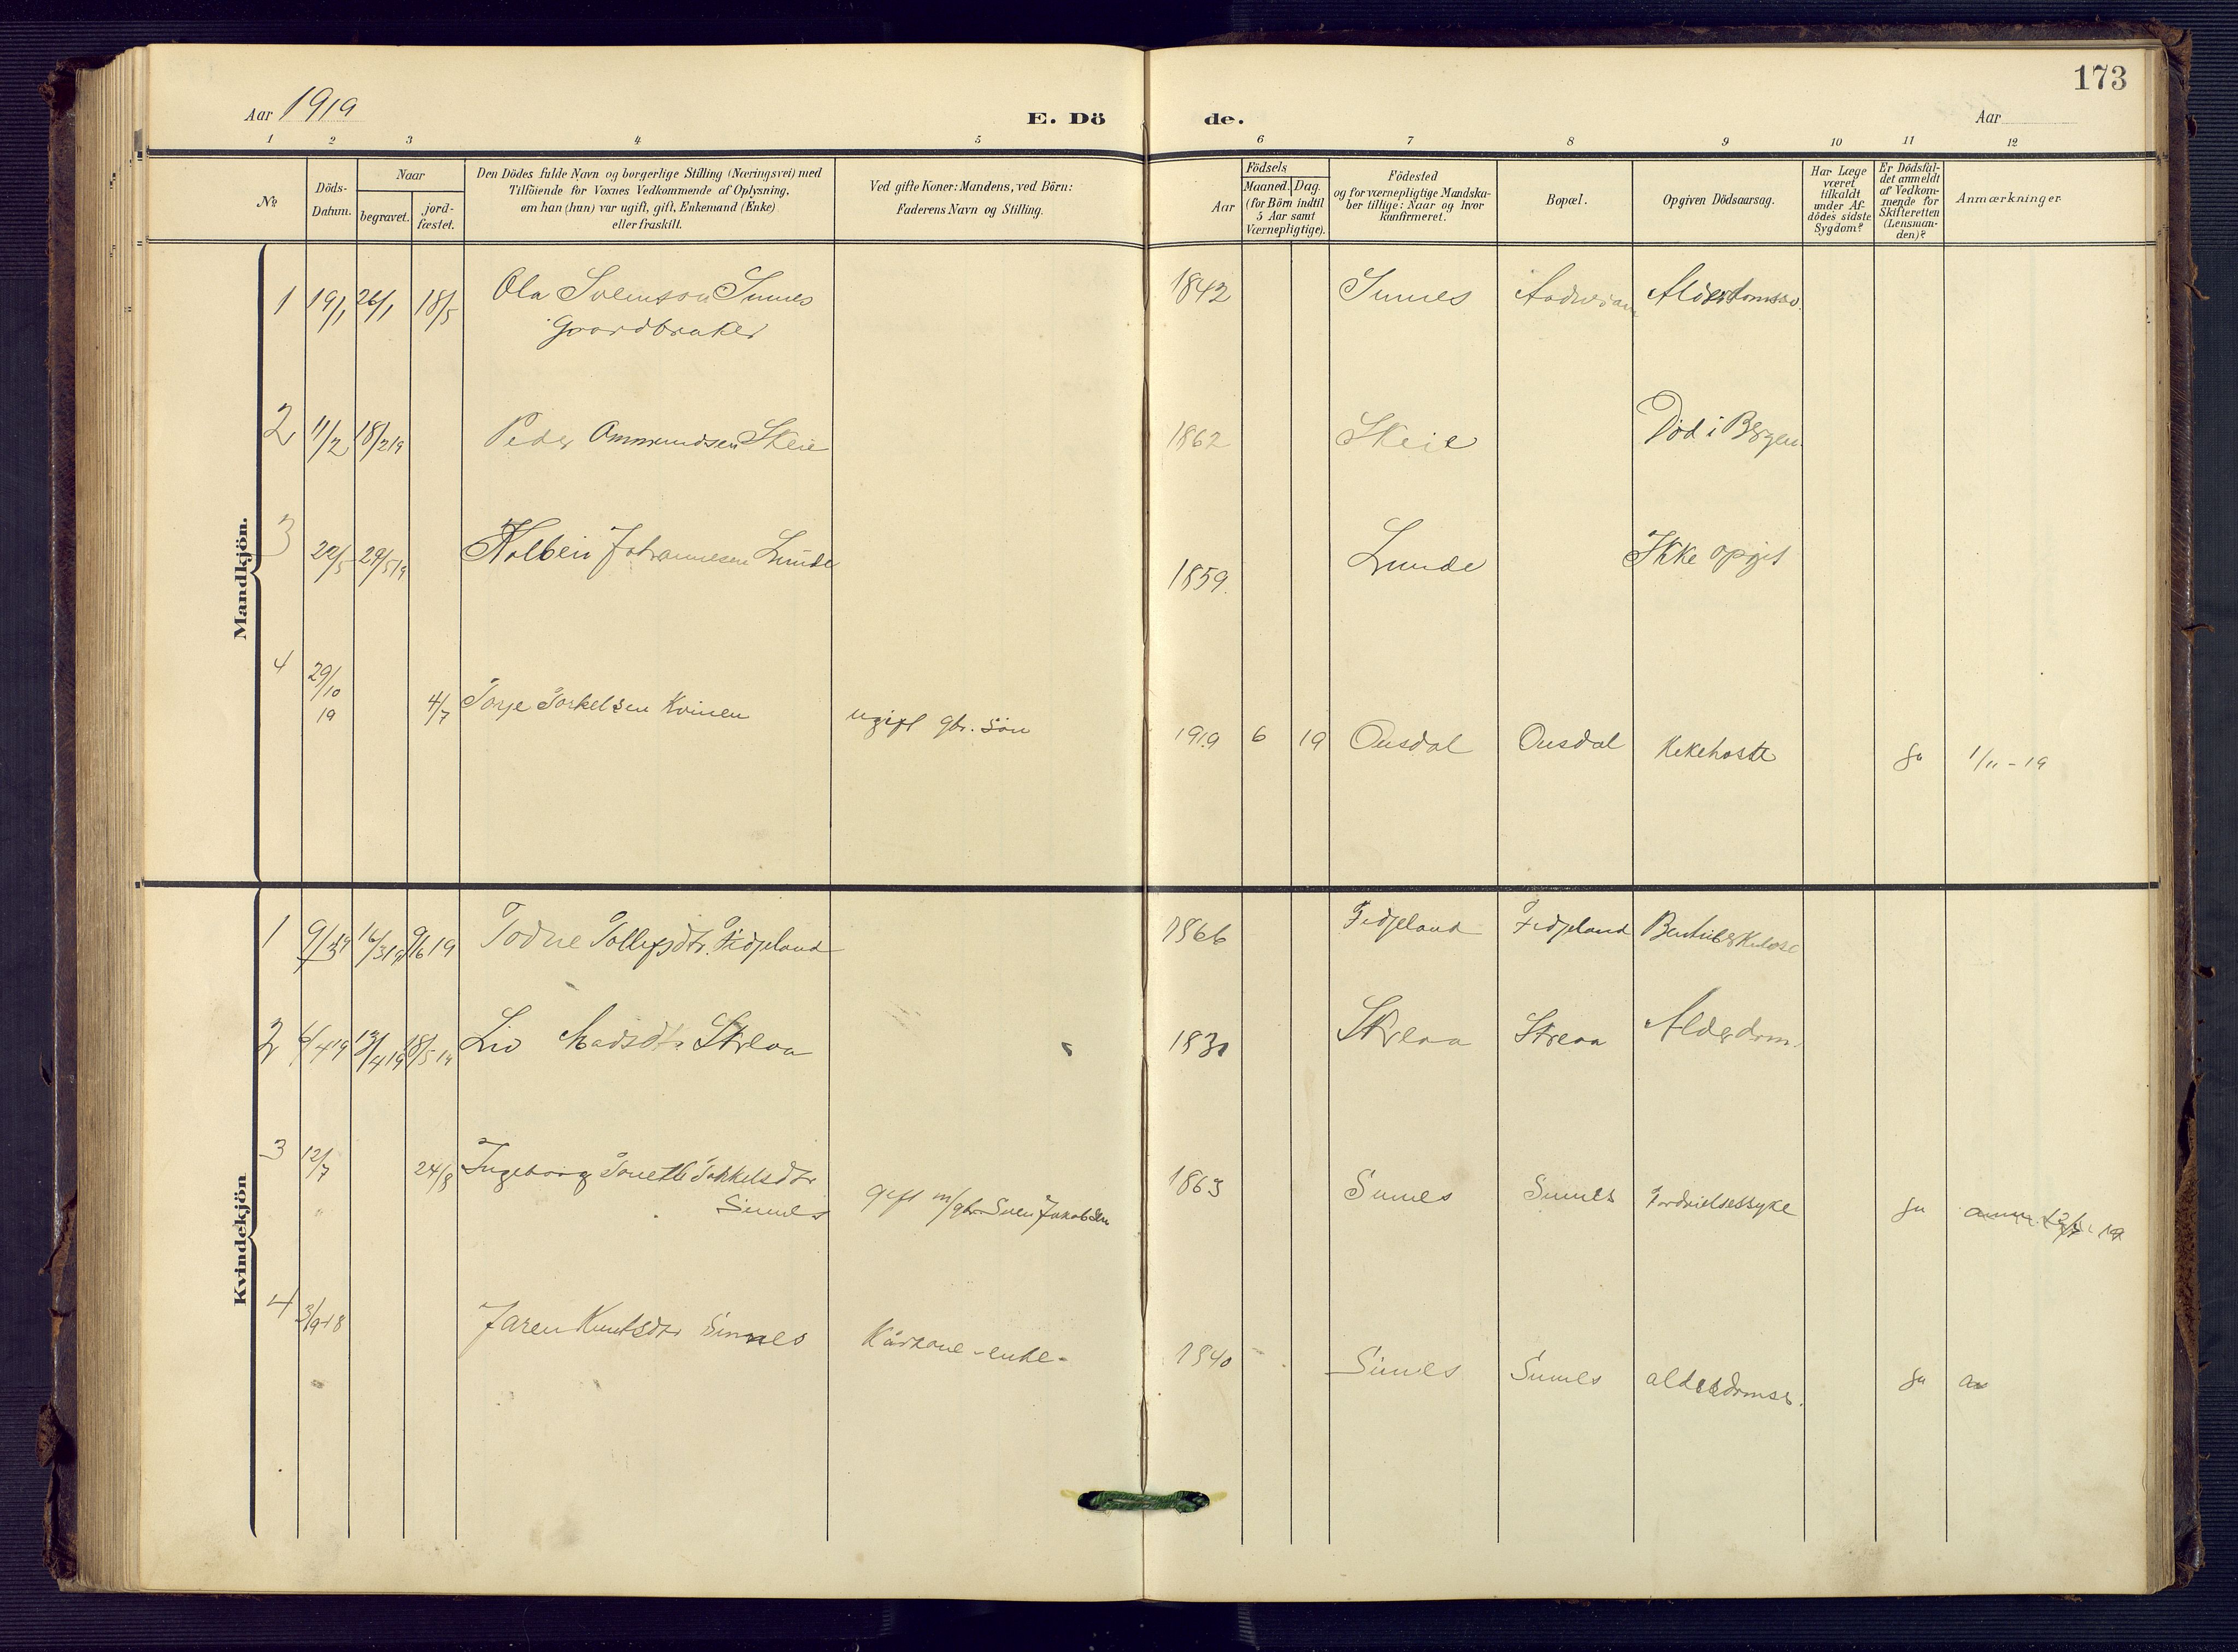 173
Aar 1919
E. Dö de.
Aar
1 2 3 4 5 6 7 8 9 10 11 12
No.
Döds-
Datum.
Naar
begravet.
jord-
fæstet.
Den Dödes fulde Navn og borgerlige Stilling (Næringsvei) med
Tilföiende for Voxnes Vedkommende af Oplysning,
om han (hun) var ugift, gift, Enkemand (Enke)
eller fraskilt.
Ved gifte Koner: Mandens, ved Börn:
Faderens Navn og Stilling.
Födsels
Aar
Maaned. Dag.
(for Börn indtil
5 Aar samt
Værnepligtige).
Födested
og for værnepligtige Mandska-
ber tillige: Naar og hvor
konfirmeret.
Bopæl.
Opgiven Dödsaarsag.
Har Læge
været
tilkaldt
under Af-
dödes sidste
Sygdom?
Er Dödsfal-
det anmeldt
af Vedkom-
mende for
Skifteretten
(Lensman-
den)?
Anmærkninger.
Mandkjön.
1 19/1 26/1 18/5 Ola Sveinson Sinnes 1842 Sinnes
Gaardbruker
2 11/2 18/2 19 Peder Ommundsen Skeie 1862 Skeie Död i Bergen
3 22/5 29/5 19 Kolbein Johannesen Lunde 1859. Lunde Ikke opgit
4 29/10
19 4/7 Torje Torkelsen Kvinen ugift gbr. sön 1919 6 19 Ousdal Ousdal Kikehoste Ja 1/11 - 19
Kvindekjön
1 16/3 19 9/6 19 Todne Tollefsdtr. Fidjeland 1866 Fidjeland Fidjeland
2 6/4 19 13/4 19 18/5 19 Liv Madsdtr Skreaa Skreaa Skreaa Alderdom.
3 12/7 24/8 Ingeborg Tonette Torkelsdtr
Sinnes gift m/gbr. Sven Jakobsen 1863 Sinnes Sinnes Ja
4 3/9 18 Jaren Knutsdtr Sinnes Kårkone - enke - 1840 Sinnes Sinnes alderdomss. Ja